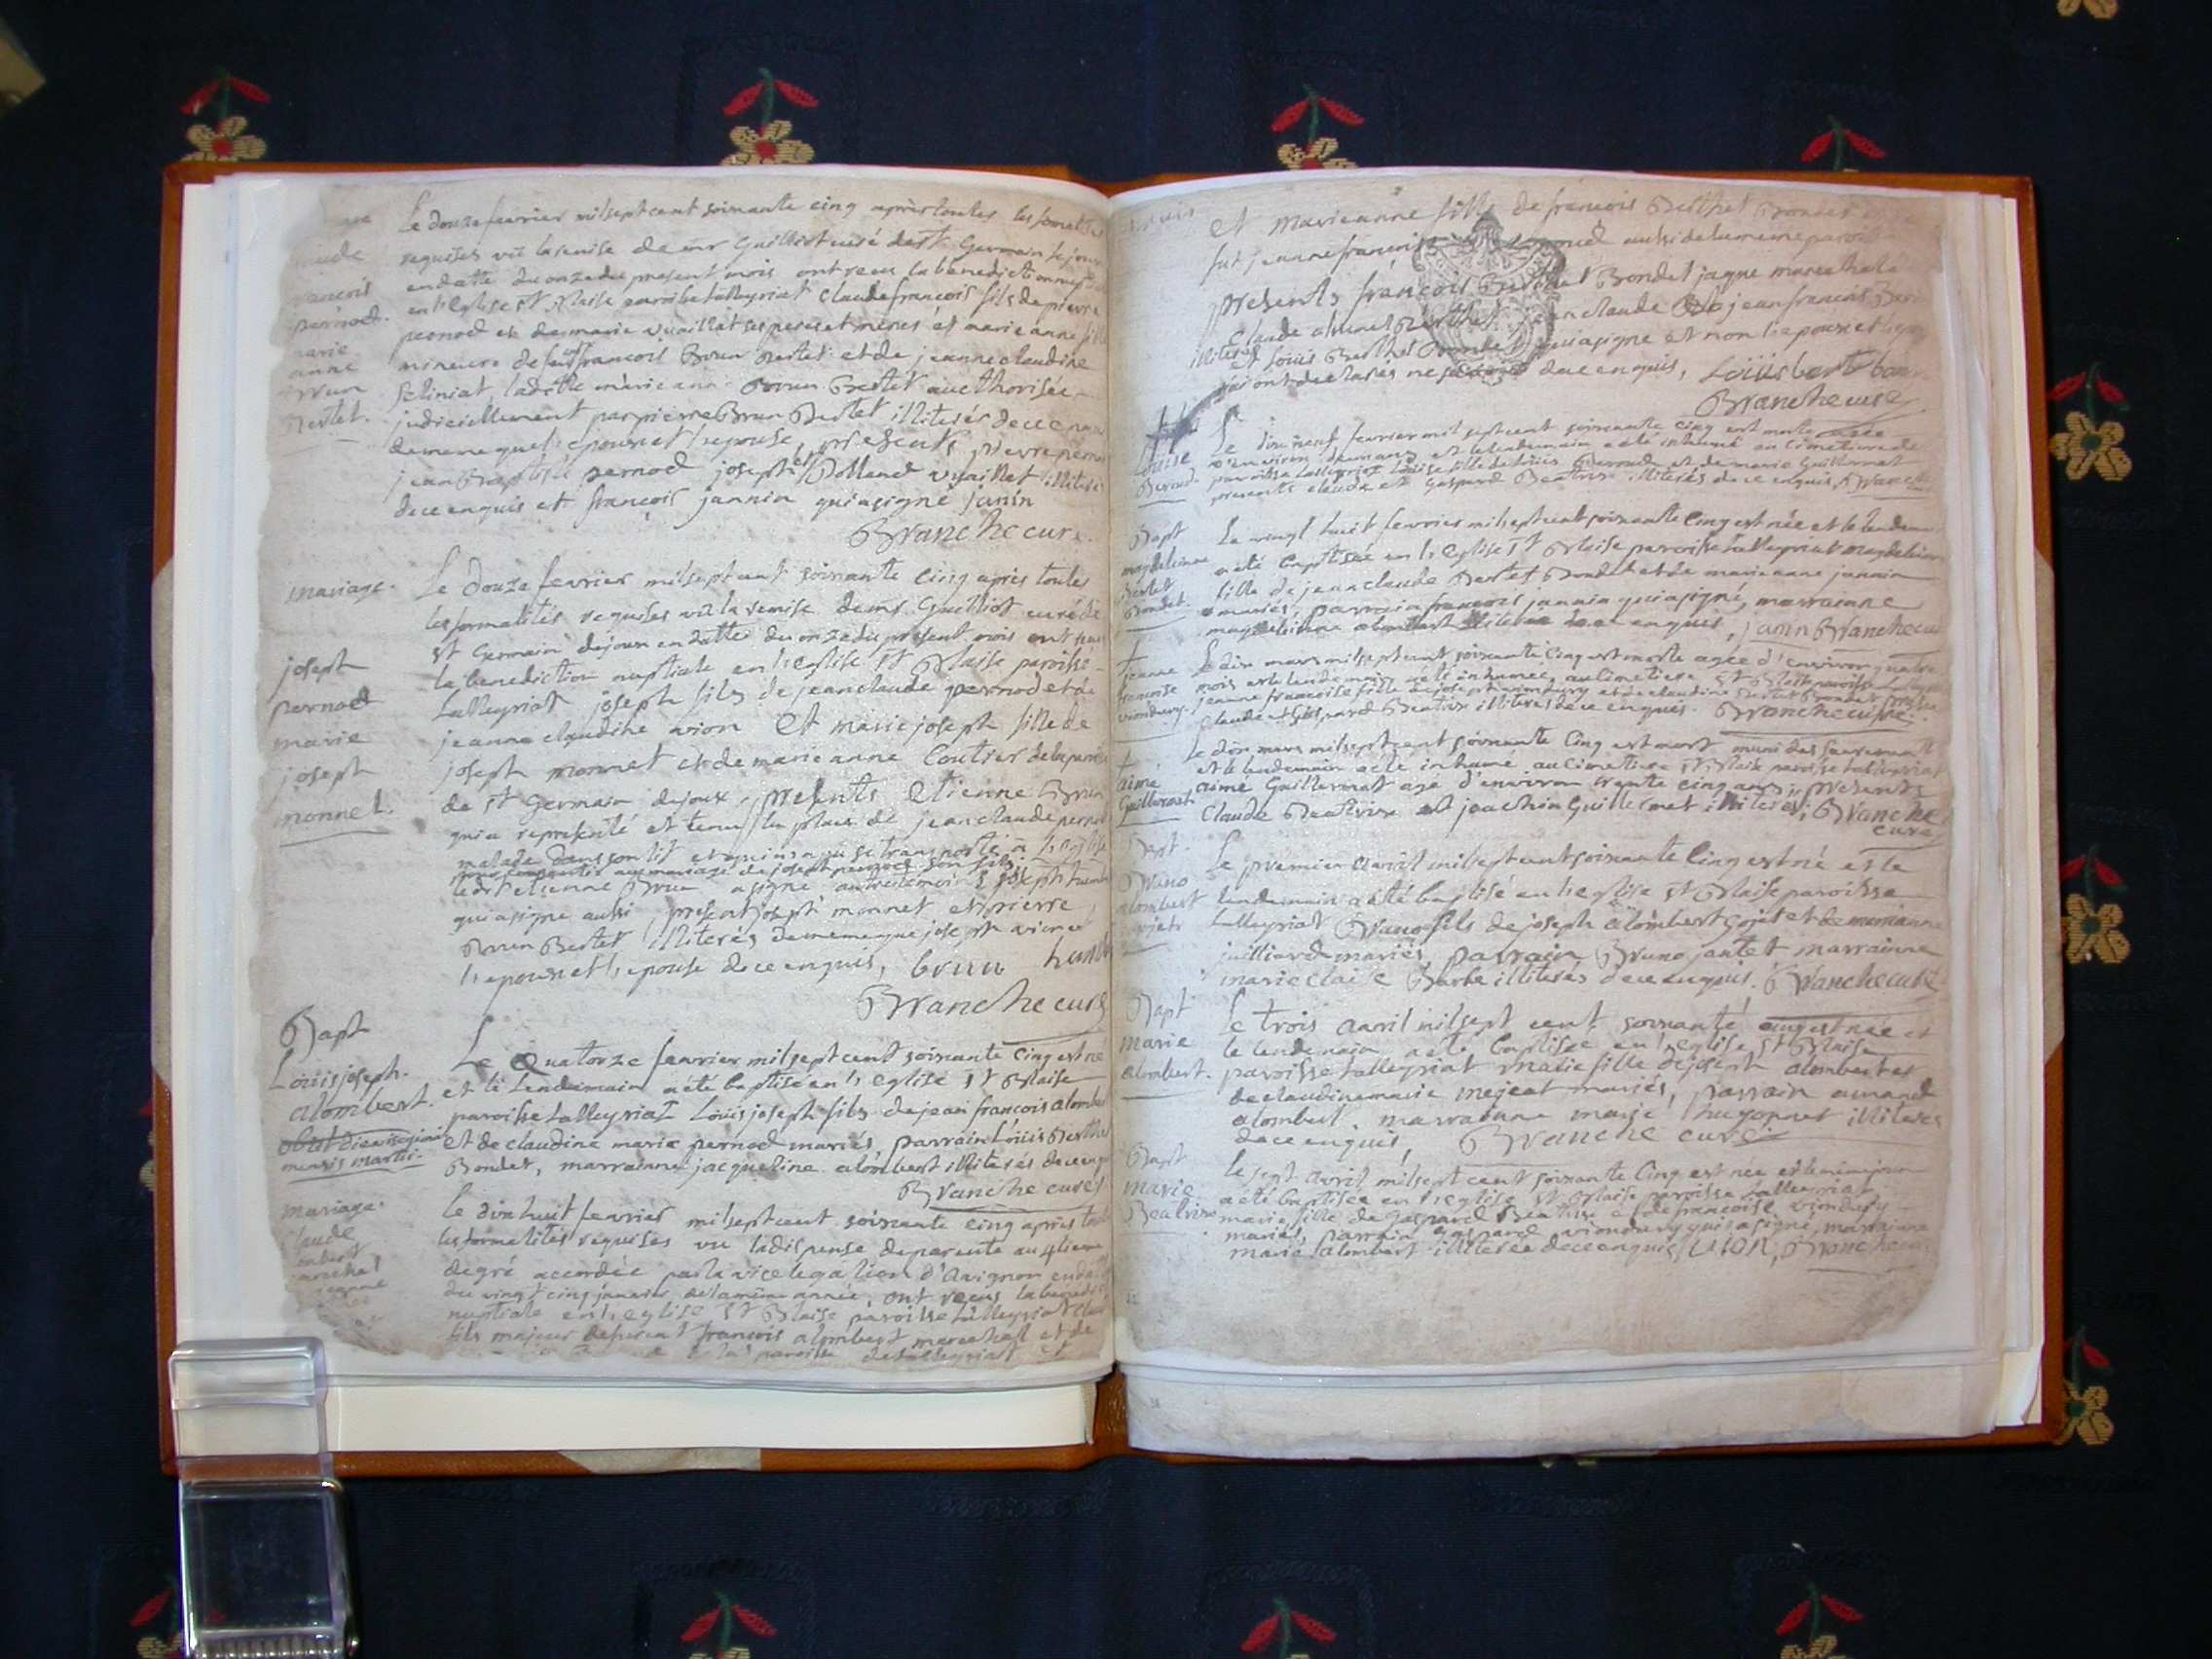 Le douze fevrier mil sept cent soixante cinq après toutes les formalités
requises vü la remise de mr Guilliot curé de st Germain dejoux
en datte du onze du present mois ont reçu la benediction
en l'eglise st Blaise paroisse talleyriat Claude françois fils de pierre
pernod et de marie vuaillat ses peres et meres et marie anne fille
mineure de feu françois Brun Bertet et de jeanne claudine
ladite marie anne Brun Bertet authorisée
judiciellement par pierre Brun Bertet illiterés de ce enquis
de meme que l'epoux et l'epouse, presents pierre pernod
jean Baptiste pernod joseph et Rolland vuaillat illiterés
de ce enquis et françois jannin qui a signé janin
Branche curé.
françois
pernod.
marie
anne
Brun
Bertet.
mariage.
joseph
pernod
marie
joseph
monnet.
Le douze fevrier mil sept cent soixante cinq après toutes
les formalités requises vü la remise de mr Guilliot curé de
st Germain dejoux en datte du onze du present mois ont reçu
la benediction nuptiale en l'eglise st Blaise paroisse
talleyriat joseph fils de jean claude pernod et de
jeanne claudine avion Et marie joseph fille de
joseph monnet et de marie anne Coutier de la paroisse
de st Germain dejoux, presents Etienne Brun
qui a representé et tenu la place de jean claude pernod
malade dans son lit et qui n'a pû se transporter à l'eglise
pour consentir au mariage de joseph pernod son fils
ledit etienne Brun a signé autre temoin joseph humbert
qui a signé aussi, present joseph monnet et pierre
Brun Bertet illiterés de meme que joseph avion
l'epoux et l'epouse de ce enquis, brun humb
Branche curé
Bapt
Loüis joseph.
alombert.
obiit
mensis martii.
Le Quatorze fevrier mil sept cent soixante cinq est né
et le Lendemain a été baptisé en l'eglise st Blaise
paroisse talleyriat Loüis joseph fils de jean françois alombert
et de claudine marie pernod mariés, parrain Loüis Berthet
Bondet, marrainne jacqueline alombert illiterés de ce enquis
Branche curé
mariage.
Claude
Le dix huit fevrier mil sept cent soixante cinq après toutes
les formalités requises vu la dispense de parenté au 4ieme
degré accordée par la vice legation d'Avignon en datte
du vingt cinq janvier de la même année, ont reçus la bénédiction
nuptiale en l'eglise st Blaise paroisse talleyriat Claude
fils majeur de françois alombert marechal et de
la paroisse de talleyriat et
et marie anne fille de françois Berthet Bondet
fut jeanne françoise aussi de la meme paroisse
presents françois Berthet Bondet jaque marechal
Claude alombert jean claude jean françois
illiterés et Loüis Berthet Bondet qui a signé et non l'epoux et l'epouse
qui ont declarés ne sçavoir de ce enquis, Loüis bert bon
Branche curé
Louise
Beroud
Le dix neuf fevrier mil sept cent soixante cinq est morte agée
d'environ deux ans et le lendemain a été inhumé au cimetiere de
paroisse talleyriat Loüise fille de Loüis Beroud et de marie Guillermet
presents claude et Gaspard Beatrix illiterés de ce enquis Branche
Bapt
magdeleinne
Bertet
Bondet.
Le vingt huit fevrier mil sept cent soixante Cinq est née et le lendemain
a été baptisée en l'eglise st Blaise paroisse talleyriat magdeleinne
fille de jean claude Bertet Bondet et de marie anne jannin
mariés, parrain françois jannin qui a signé, marrainne
magdeleinne alombert illiterée de ce enquis, janin Branche curé
jeanne
francoise
viondury.
Le dix mars mil sept cent soixante Cinq est morte agée d'environ quatre
mois et le lendemain a été inhumée au cimetiere st Blaise paroisse talleyriat
jeanne françoise fille de joseph viondury et de claudine Bertet Bondet presents
Claude et Gaspard Beatrix illiterés de ce enquis. Branche curé
aimé
Guillermet
Le dix mars mil sept cent soixante Cinq est mort muni des sacrements
et le lendemain a été inhumé au Cimetiere st Blaise paroisse talleyriat
aimé Guillermet agé d'environ trente cinq ans, presents
Claude Beatrix et joachin Guillermet illiterés, Branche
curé
Bapt.
Bruno
alombert
gojet
Le premier avril mil sept cent soixante Cinq est né et le
lendemain a été baptisé en l'eglise st Blaise paroisse
talleyriat Bruno fils de joseph alombert gojet et de marianne
juilliard mariés, parrain Bruno jantet marrainne
marie claire Barbe illiterés de ce enquis. Branche curé
Bapt
marie
alombert.
Le trois avril mil sept cent soixante cinq est née et
le lendemain a été baptisée en l'eglise st Blaise
paroisse talleyriat marie fille de joseph alombert et
de claudine marie mejeat mariés, parrain amand
alombert, marrainne marie hugonnet illiterés
de ce enquis, Branche curé
Bapt
marie
Beatrix
Le sept avril mil sept cent soixante Cinq est née et le meme jour
a été baptisée en l'eglise st Blaise paroisse talleyriat
marie fille de Gaspard Beatrix et de françoise viondury
mariés, parrain Gaspard viondury qui a signé, marrainne
marie alombert illiterée de ce enquis, UION, Branche curé